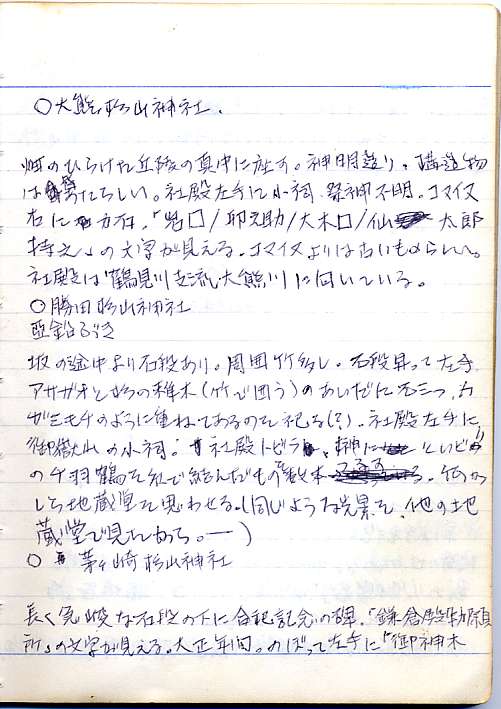 〇大熊杉山神社.
畑のひらけた丘陵の真中に座す。神明造り、構造物
はあたらしい。社殿左手に小祠、祭神不明。コマイヌ
右に 方石,「 口/卯之助/大木口/仙 太郎
持之」の文字が見える。コマイヌよりは古いものらしい。
社殿は鶴見川支流大熊川に向いている。
〇勝田杉山神社
亜鉛ぶき
坂の途中より石段あり。周囲竹多し。石段昇って左手
アサガオと杉の稚木(竹で囲う)のあいだに石三つ,カ
ガミモチのように重ねてあるのを祀る(?)。社殿左手に
御嶽山の小祠。社殿トビラ 、 に といど
の千羽鶴を紅で結んだもの数本 る。何か
しら地蔵堂を思わせる。(同じような光景を、他の土地
蔵堂で見たから。ー)
〇 茅ヶ崎杉山神社
長く急峻な石段の下に合祀記念の碑。「鎌倉殿勅願
所」の文字が見える。大正年間。のぼって左手に「御神木